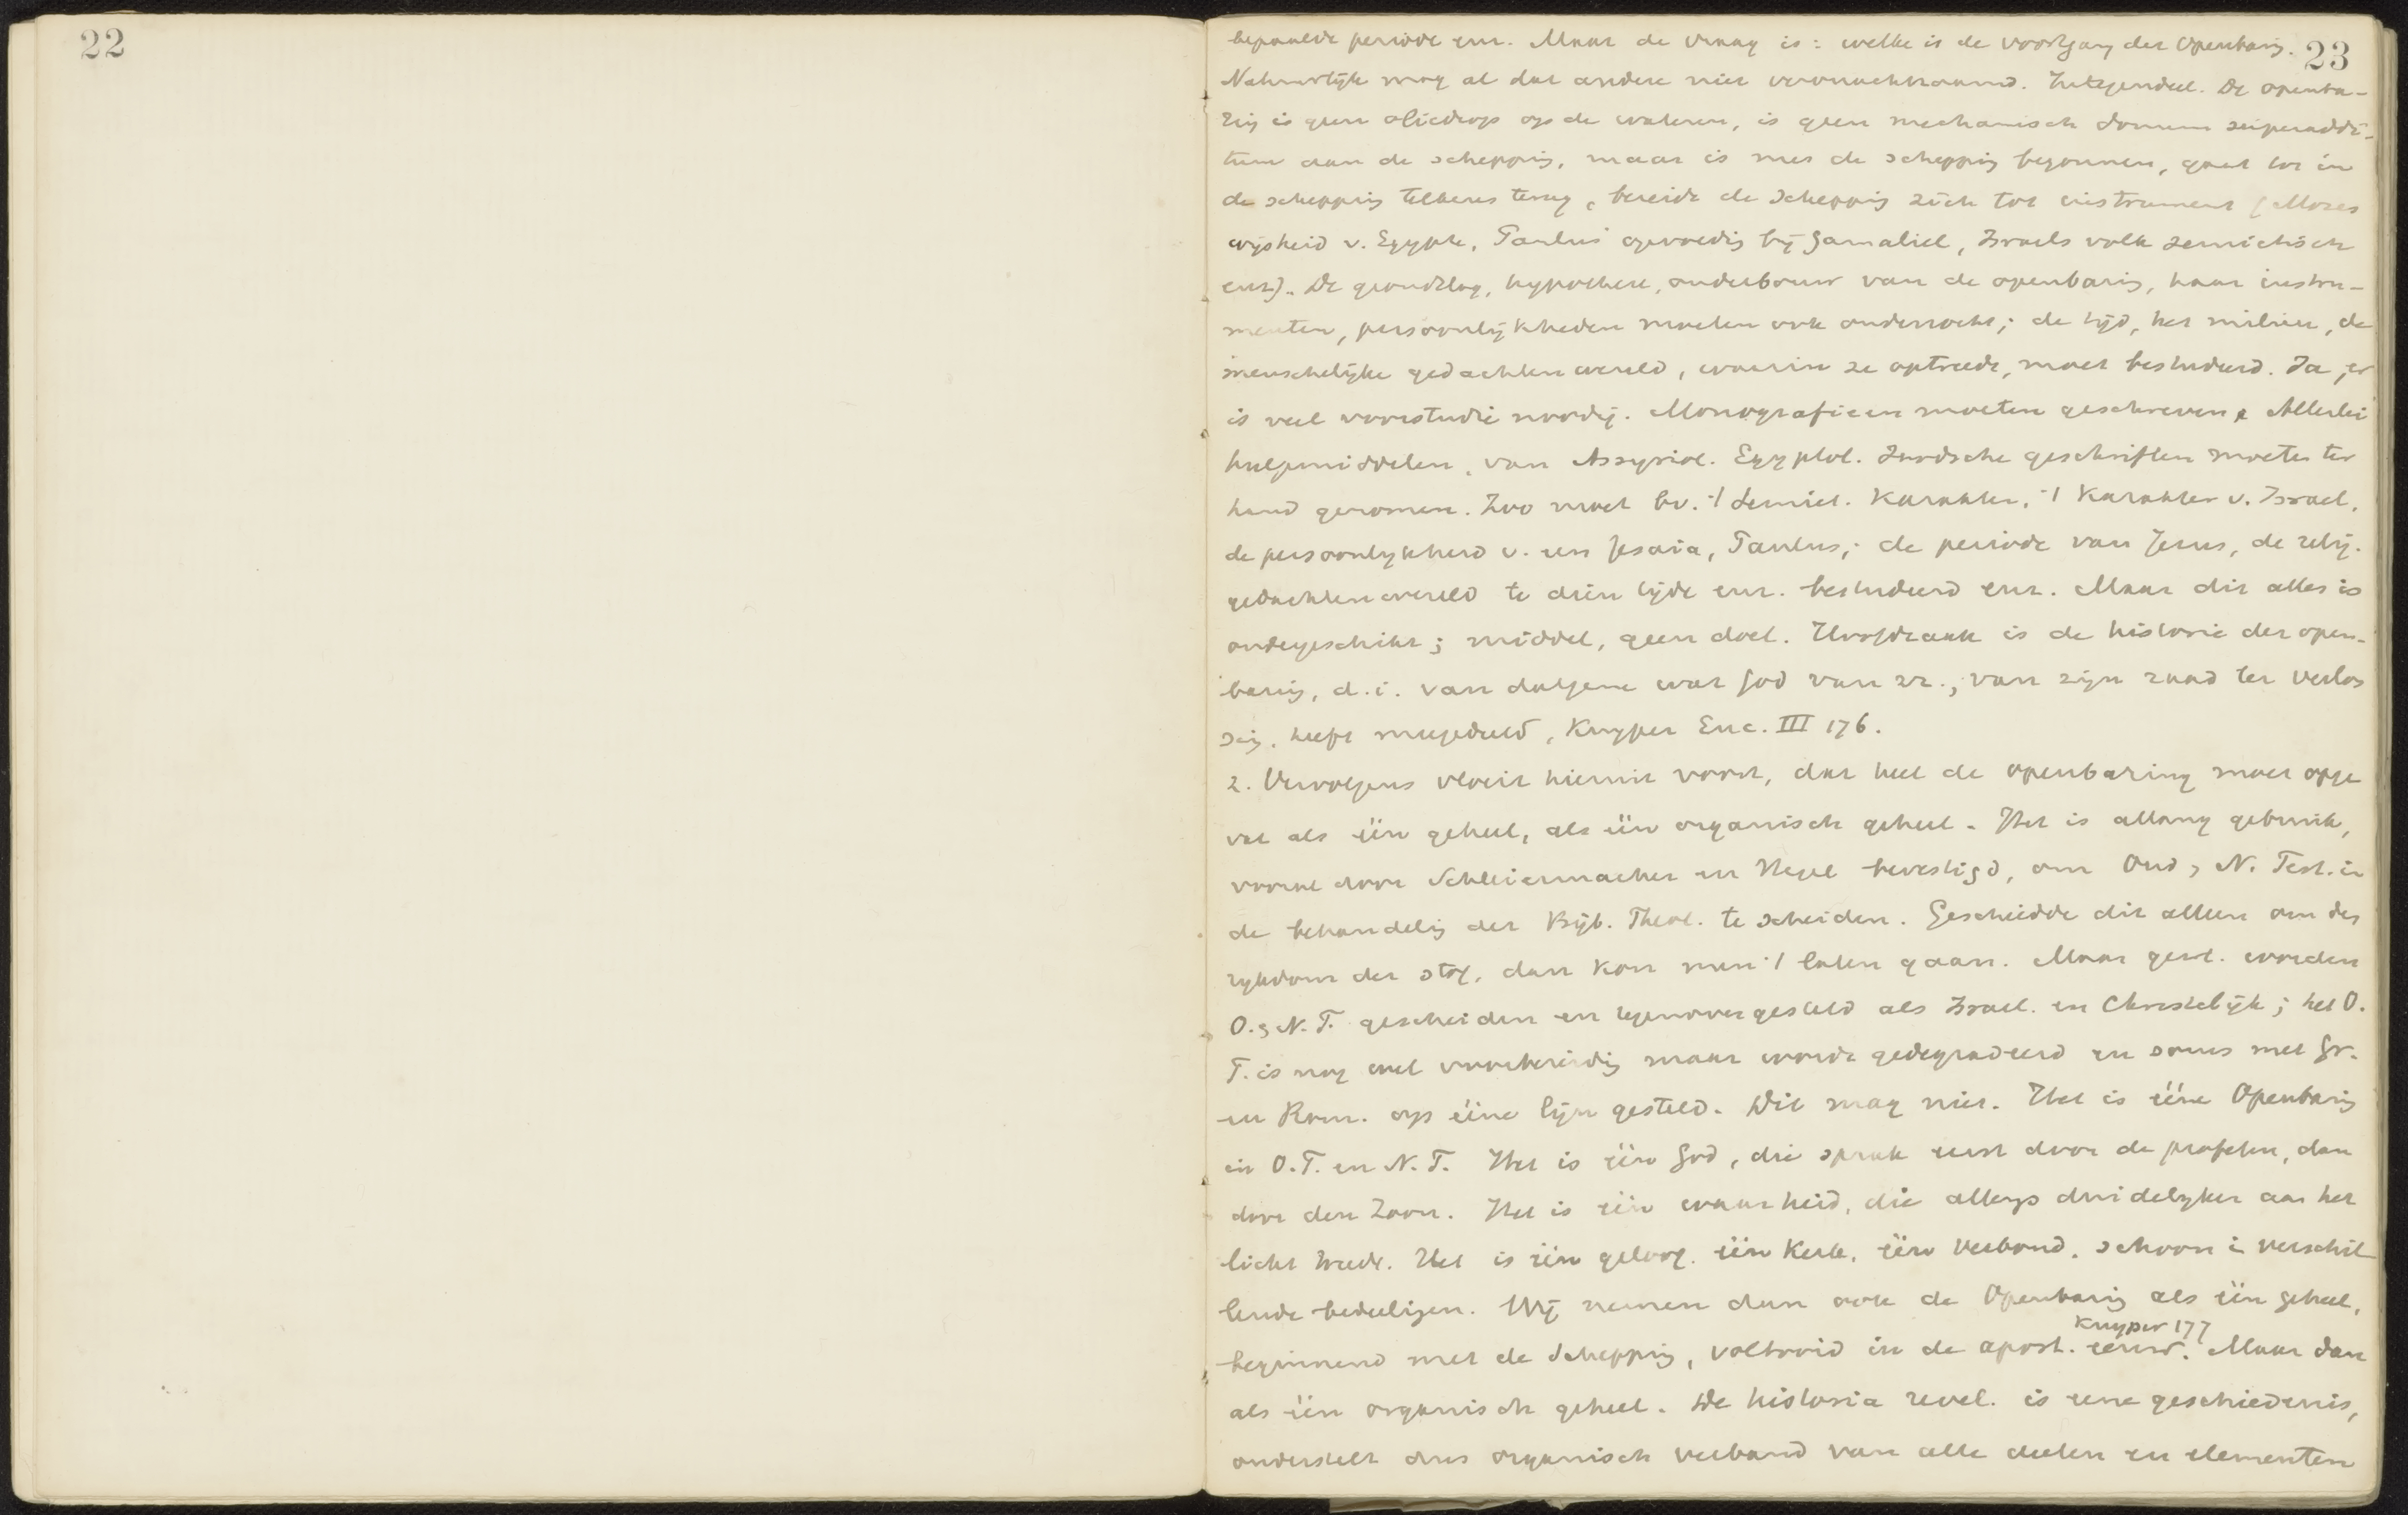 22
23
bepaalde periode enz. Maar de vraag is: welke is de voortgang der Openbarg.
Natuurlijk mag al dat andere niet veronachtzaamd. Integendeel. De openba-
ring is geen oliedrop op de wateren, is geen mechanisch donum superaddi-
tum aan de schepping, maar is met de schepping begonnen, gaat tot in
de schepping telkens terug, bereidt de Schepping zich tot instrument (Mozes
wijsheid v. Egypte, Paulus opvoedig bij Gamaliel, Israels volk semietisch
enz.). De grondslag, hypothese, onderbouw van de openbarig, haar instru-
menten, persoonlijkheden moeten ook onderzocht; de tijd, het milieu, de
menschelijke gedachtenwereld, waarin ze optreedt, moet bestudeerd. Ja, er
is veel voorstudie noodig. Monografieen moeten geschreven, Allerlei
hulpmiddelen, van Assyriol. Egyptol. Joodsche geschriften moeten ter
hand genomen. Zoo moet bv. 't Semiet. Karakter, 't Karakter v. Israel,
de persoonlykheid v. een Jesaia, Paulus; de periode van Jezus, de relig.
gedachtenwereld te dien tijde enz. bestudeerd enz. Maar dit alles is
ondergeschikt; middel, geen doel. Hoofdzaak is de historie der open-
barig, d.i. van datgene wat God van zr., van zijn raad ter verlos
sig. heeft meegedeeld, Kuyper Enc. III 176.
2. Vervolgens vloeit hieruit voort, dat heel de openbaring moet opge
vat als één geheel, als één organisch geheel. Het is allang gebruik,
vooral door Schleiermacher en Hegel bevestigd, om Oud & N. Test. in
de behandelig der Bijb. Theol. te scheiden. Geschiedde dit alleen om des
rykdom der stof, dan kon men 't laten gaan. Maar gew. worden
O. & N. T. gescheiden en tegenovergesteld als Israel. en Christelijk; het O.
T. is nog wel voorbereidig maar wordt gedegradeerd en soms met Gr.
en Rom. op ééne lijn gesteld. Dit mag niet. Het is ééne Openbarig
in O.T. en N.T. Het is één God, die sprak eerst door de profeten, dan
door den Zoon. Het is één waarheid, die allengs duidelyker aan het
licht treedt. Het is één geloof, één Kerk, één Verbond, schoon in verschil
lende bedeeligen. Wij nemen dan ook de Openbarig als één geheel,
Kuyper 177
beginnend met de Schepping, voltooid in de apost. eeuw. Maar dan
als één organisch geheel. De historia revel. is eene geschiedenis,
onderstelt dus organisch verband van alle deelen en elementen